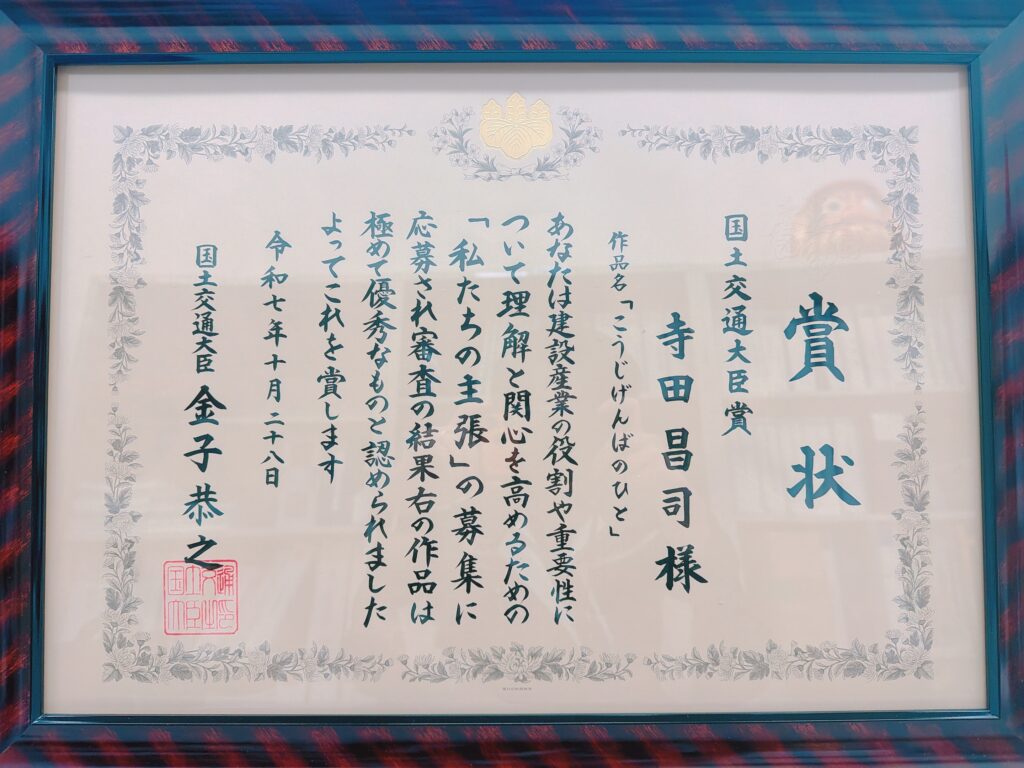 賞状
国土交通大臣賞
寺田昌司様
作品名「こうじげんばのひと」
あなたは建設産業の役割や重要性に
ついて理解と関心を高めるための
「私たちの主張」の募集に
応募され審査の結果右の作品は
極めて優秀なものと認められました
よってこれを賞します
令和七年十月二十八日
国土交通大臣 金子恭之